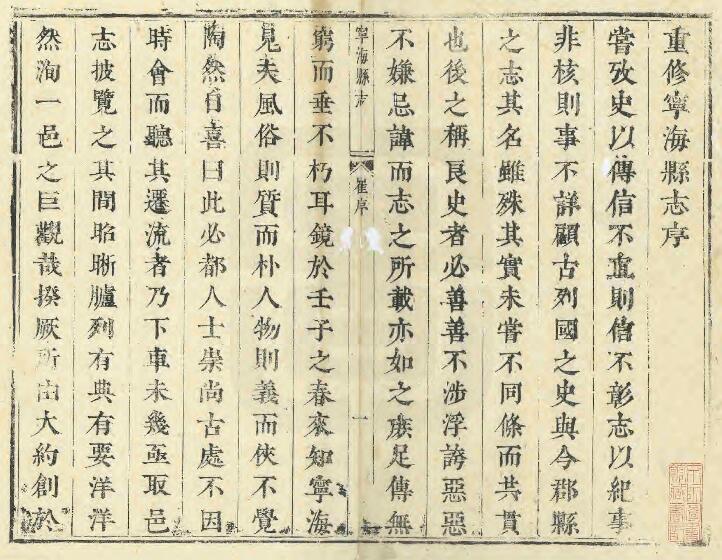 重修寧海縣志序
嘗攷史以傳信不直則信不彰志以紀事
非核則事不詳顧古列國之史與今郡縣
之志其名雖殊其實未嘗不同條而共貫
也後之稱良史者必善善不涉浮誇惡惡
不嫌忌諱而志之所載亦如之庻足傳無
寧海縣志
崔序
一
窮而垂不朽耳鏡於壬子之春來知寧海
見夫風俗則質而朴人物則義而俠不覺
陶然自喜曰此必都人士崇尚古處不因
時會而聽其遷流者乃下車未幾亟取邑
志披覽之其間昭晰臚列有典有要洋洋
然洵一邑之巨觀哉揆厥所由大約創於